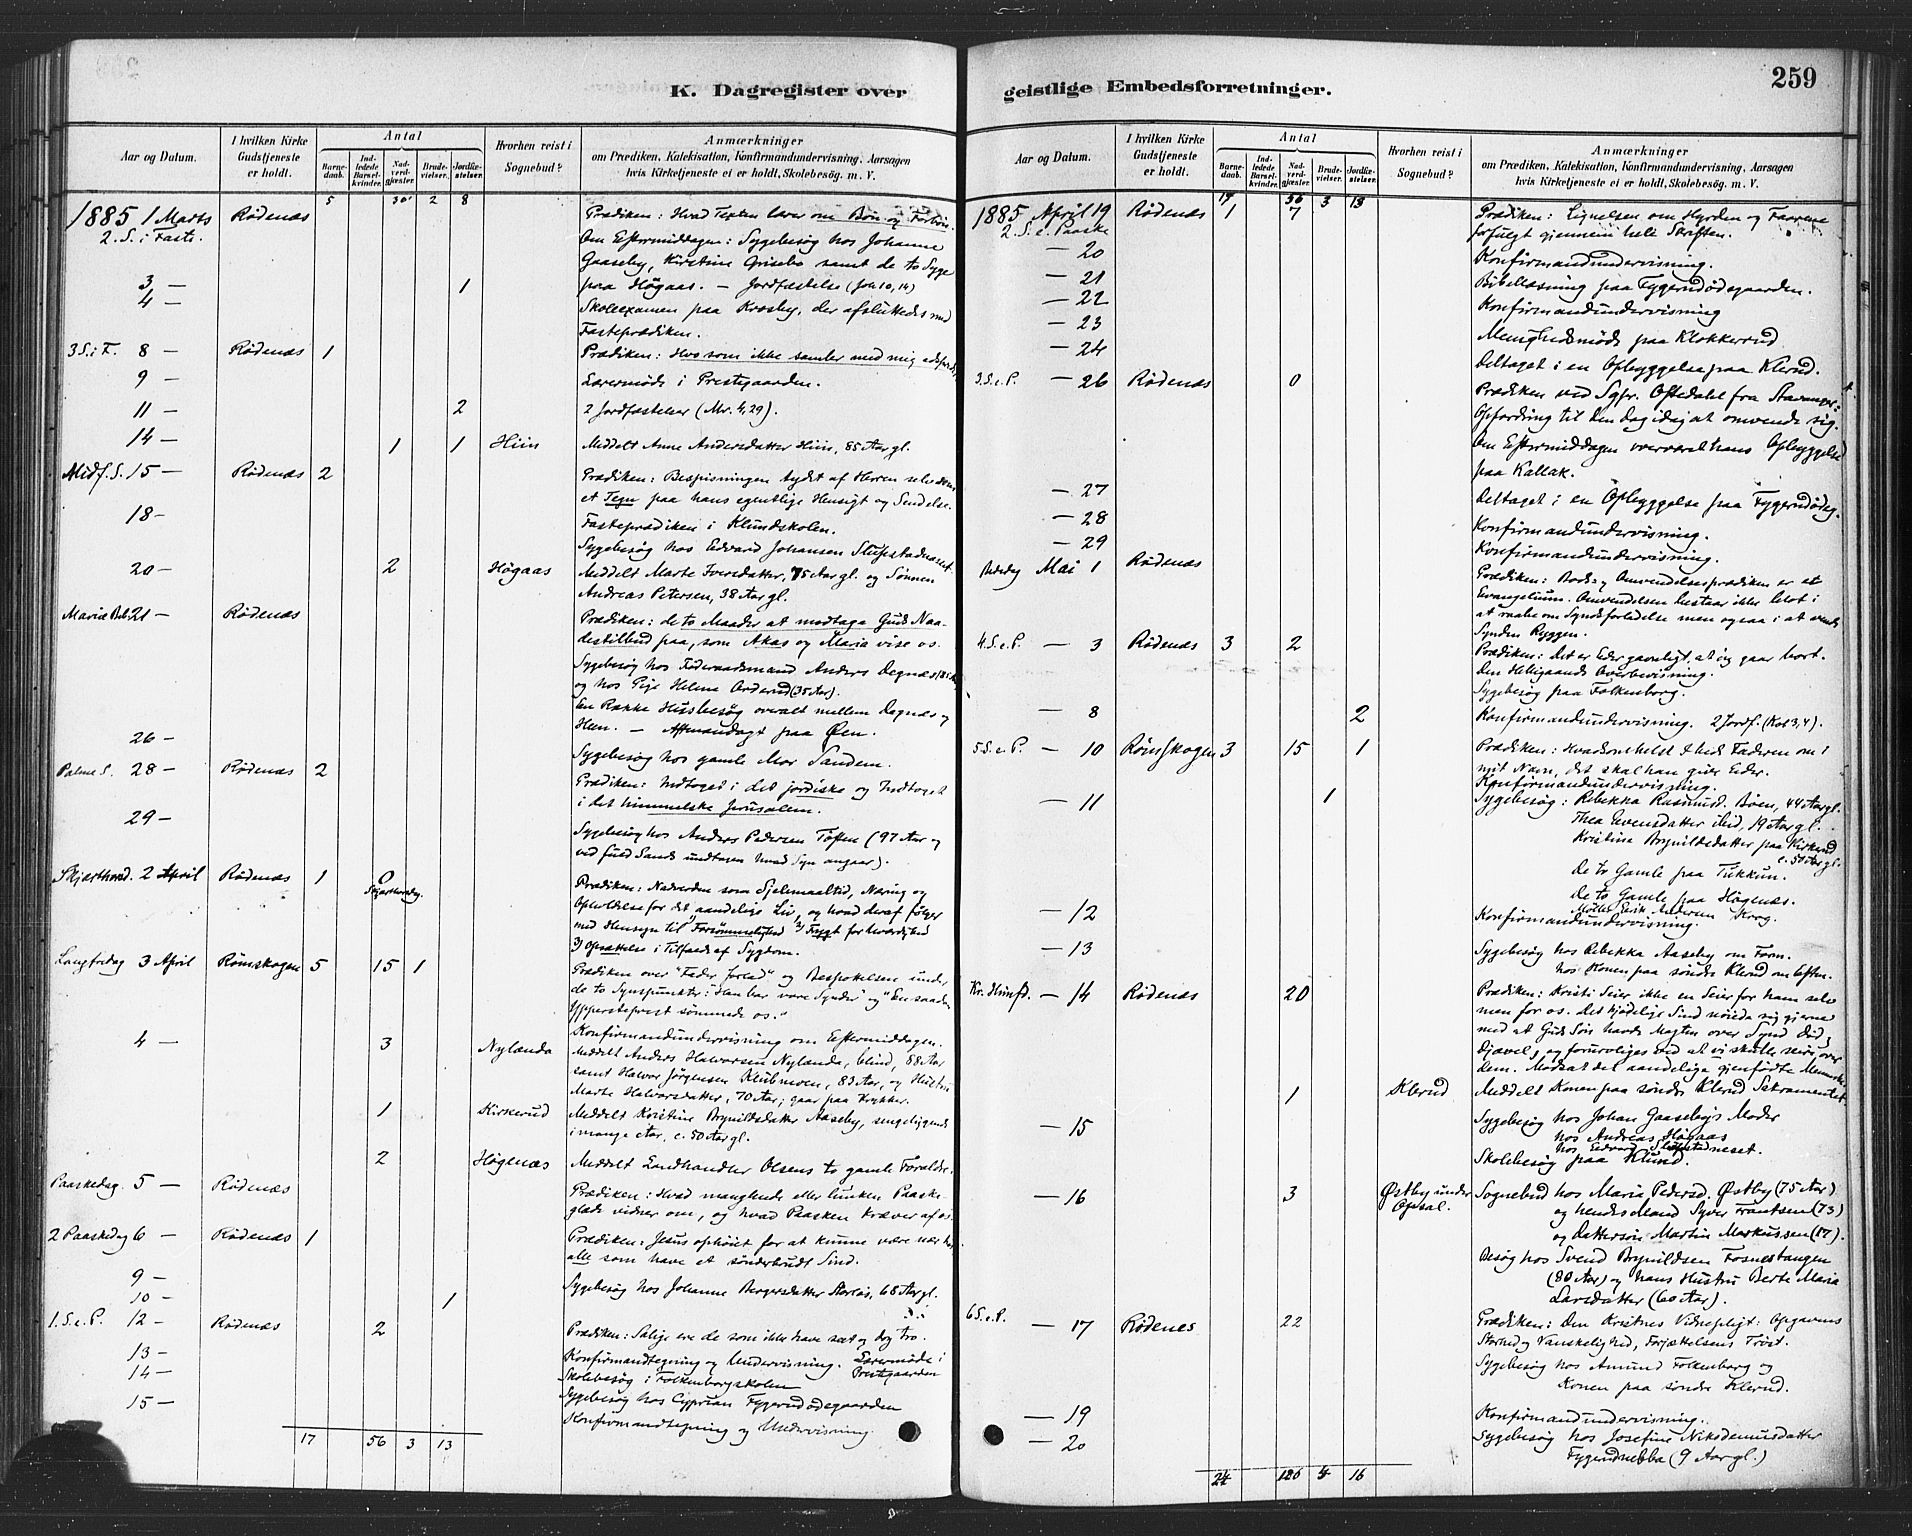 K. Dagregister over
Aar og Datum.
I hvilken Kirke Gudstjeneste er holdt.
Antal
Barnedaab.
Indledede Barselkvinder.
Nadverdgjester.
Brudevielser.
Jordfæstelser.
Hvorhen reist i Sognebud?
Anmærkninger
om Prædiken, Katekisation, Konfirmandundervisning, Aarsagen
hvis Kirketjeneste ei er holdt, Skolebesøg. m. V.
5 30 2 8
1885 1 Marts Rødenæs Prædiken: Hvad Texten lærer om Bøn og Forbøn.
2. S. i Faste. Om Eftermiddagen: Sygebesøg hos Johanne
Gaaseby, Kirstine Grisebo samt de to Syge
3 — 1 paa Högaas. — Jordfæstelse (Joh. 10, 14)
4 — Skoleexamen paa Krosby, der afsluttedes med
Fasteprædiken.
3 S. i F. 8 — Rødenæs 1 Prædiken: Hvo som ikke samler med mig adspreder.
9 — Lærermøde i Prestgaarden.
11 — 2 2 Jordfæstelser (Mr. 4, 29).
14 — 1 1 Hiin Meddelt Anne Andersdatter Hiin, 85 Aar gl.
Midf. S. 15 — Rødenæs 2 Prædiken: Bespisningen tydet af Herren selv som
et Tegn paa hans egentlige Hensigt og Sendelse.
18 — Fasteprædiken i Klundskolen.
Sygebesøg hos Edvard Johansen Slupstadneset.
20 — 2 Högaas Meddelt Marte Iversdatter, 75 Aar gl. og Sønnen
Andreas Petersen, 38 Aar gl.
Mariæ Beb. 21 — Rødenæs Prædiken: de to Maader at modtage Guds Naa-
destilbud paa, som Akas og Maria vise os.
Sygebesøg hos Føderaadsmand Anders Degnæs
og hos Pige Helene Orderud (35 Aar).
En Række Husbesøg overalt mellem Degnæs og
Hen. — Aftensandagt paa Øen.
26 — Sygebesøg hos gamle Mor Sandem.
Palme S. 28 — Rødenæs 2 Prædiken: Indtoget i det jordiske og Indtoget
i det himmelske Jerusalem.
29 — Sygebesøg hos Anders Pedersen Tøften (97 Aar og
ved fuld Sands undtagen hvad Syn angaar).
Skjærthorsd. 2 April Rødenæs 1 0 Prædiken: Nadverden som Sjelemaaltid, Næring og
Skjærthorsdag. Opholdelse for det aandelige Liv, og hvad deraf følger
med Hensyn til 1) Forsømmelighed 2) Frygt for Uværdighed
3) Opsættelse i Tilfælde af Sygdom.
Langfredag 3 April Rømskogen 5 15 1 Prædiken over "Fader forlad" og Bespottelsen under
de to Synspunkter: "Han bar vore Synder" og "En saadan
Ypperstepræst sømmede os."
Konfirmandundervisning om Eftermiddagen.
4 — 3 Nylænda Meddelt Anders Halvorsen Nylænda, blind, 88 Aar
samt Halvor Jörgensen Klubmoen, 83 Aar, og Hustru
Marte Halvorsdatter, 70 Aar; gaar paa Krykker.
1 Kirkerud Meddelt Kristine Brynildsdatter Aaseby, sengeliggende
i mange Aar, c. 50 Aar gl.
2 Høgenæs Meddelt Landhandler Olsens to gamle Forældre.
Paaskedag 5 — Rødenæs Prædiken: Hvad manglende eller lunken Paaske-
glæde vidner om, og hvad Paasken kræver af os.
2 Paaskedag 6 — Rødenæs 1 Prædiken: Jesus ophøiet for at kunne være nær hos
alle som have et sønderbrudt Sind.
9 — Sygebesøg hos Johanne Borgersdatter Storløs, 68 Aar gl.
10 — 1
1. S. e. P. 12 — Rødenæs 2 Prædiken: Salige ere de som ikke have seet og dog tro.
13 — Konfirmandtegning og Undervisning. Lærermøde i
14 — Skolebesøg i Folkenborgskolen Prestgaarden
15 — Sygebesøg hos Cyprian Fygerudødegaarden
Konfirmandtegning og Undervisning.
17 56 3 13
259
geistlige Embedsforretninger.
Aar og Datum.
I hvilken Kirke Gudstjeneste er holdt.
Antal
Barnedaab.
Indledede Barselkvinder.
Nadverdgjester.
Brudevielser.
Jordfæstelser.
Hvorhen reist i Sognebud?
Anmærkninger
om Prædiken, Katekisation, Konfirmandundervisning, Aarsagen
hvis Kirketjeneste ei er holdt, Skolebesøg. m. V.
17 56 3 13
1885 April 19 Rødenæs 1 7 Prædiken: Lignelsen om Hyrden og Faarene
2. S. e. Paaske forfulgt gjennem hele Skriften.
— 20 Konfirmandundervisning.
— 21 Bibellæsning paa Fygerudødegaarden.
— 22 Konfirmandundervisning
— 23 Menighedsmøde paa Klokkerud
— 24 Deltaget i en Opbyggelse paa Klerud.
3. S. e. P. — 26 Rødenæs 0 Prædiken ved Sgpr. Oftedahl fra Stavanger:
Opfordring til den Dag idag at omvende sig.
Om Eftermiddagen overværet hans Opbyggelse
paa Kallak.
— 27 Deltaget i en Opbyggelse paa Fygerudødeg.
— 28 Konfirmandundervisning.
— 29 Konfirmandundervisning.
Bededag Mai 1 Rødenæs Prædiken: Bods- og Omvendelsesprædiken er et
Evangelium. Omvendelsen bestaar ikke blot i
at raabe om Syndsforladelse men ogsaa i at vende
Synden Ryggen.
4. S. e. P. — 3 Rødenæs 3 2 Prædiken: det er Eder gavnligt, at jeg gaar bort.
Den Helligaands Overbevisning.
Sygebesøg paa Folkenborg.
— 8 2 Konfirmandundervisning. 2 Jordf. (Kol 3, 4).
5 S. e. P. — 10 Rømskogen 3 15 1 Prædiken: Hvadsomhelst I bede Faderen om i
mit Navn, det skal han give Eder.
Konfirmandundervisning.
— 11 1 Sygebesøg: Rebekka Rasmusd. Bøen, 44 Aar gl.
Thea Evensdatter ibid, 19 Aar gl.
Kristine Brynildsdatter paa Kirkerud
c. 50 Aar gl.
De to Gamle paa Tukkun.
De to Gamle paa Høgenæs.
Møller Erik Andersen Korg.
— 12 Konfirmandundervisning.
— 13 Sygebesøg hos Rebekka Aaseby om Form.
hos Konen paa søndre Klerud om Eftm.
Kr. Himf. — 14 Rødenæs 20 Prædiken: Kristi Seier ikke en Seier for ham selv
men for os. Det kjødelige Sind nøiede sig gjerne
med at Guds Søn havde Magten over Synd, Død,
Djævel, og foruroliges ved at vi skulle seire over
dem. Modsat det aandelige gjenfødte Menneske.
1 Klerud Meddelt Konen paa søndre Klerud Sakramentet.
— 15 Sygebesøg hos Johan Gaaseby's Moder
hos Andreas Högaas
hos Edvard Slupstadneset.
Skolebesøg paa Klund.
— 16 3 Østby under Opsal. Sognebud hos Maria Pedersd. Østby (75 Aar)
og hendes Mand Syver Frantsen (73)
og Dattersøn Martin Markussen (17).
Besøg hos Svend Brynildsen Fosnestangen
(80 Aar) og hans Hustru Berte Maria
Larsdatter (60 Aar).
6 S. e. P. — 17 Rødenes 22 Prædiken: Den Kristnes Vidnepligt: Opgavens
Storhed og Vanskelighed, Forjættelsens Trøst.
Sygebesøg hos Amund Folkenborg og
Konen paa søndre Klerud.
— 19 Konfirmandundervisning.
— 20 Sygebesøg hos Josefine Nikodemusdatter
Fygerudnebba (9 Aar gl.)
24 126 4 16